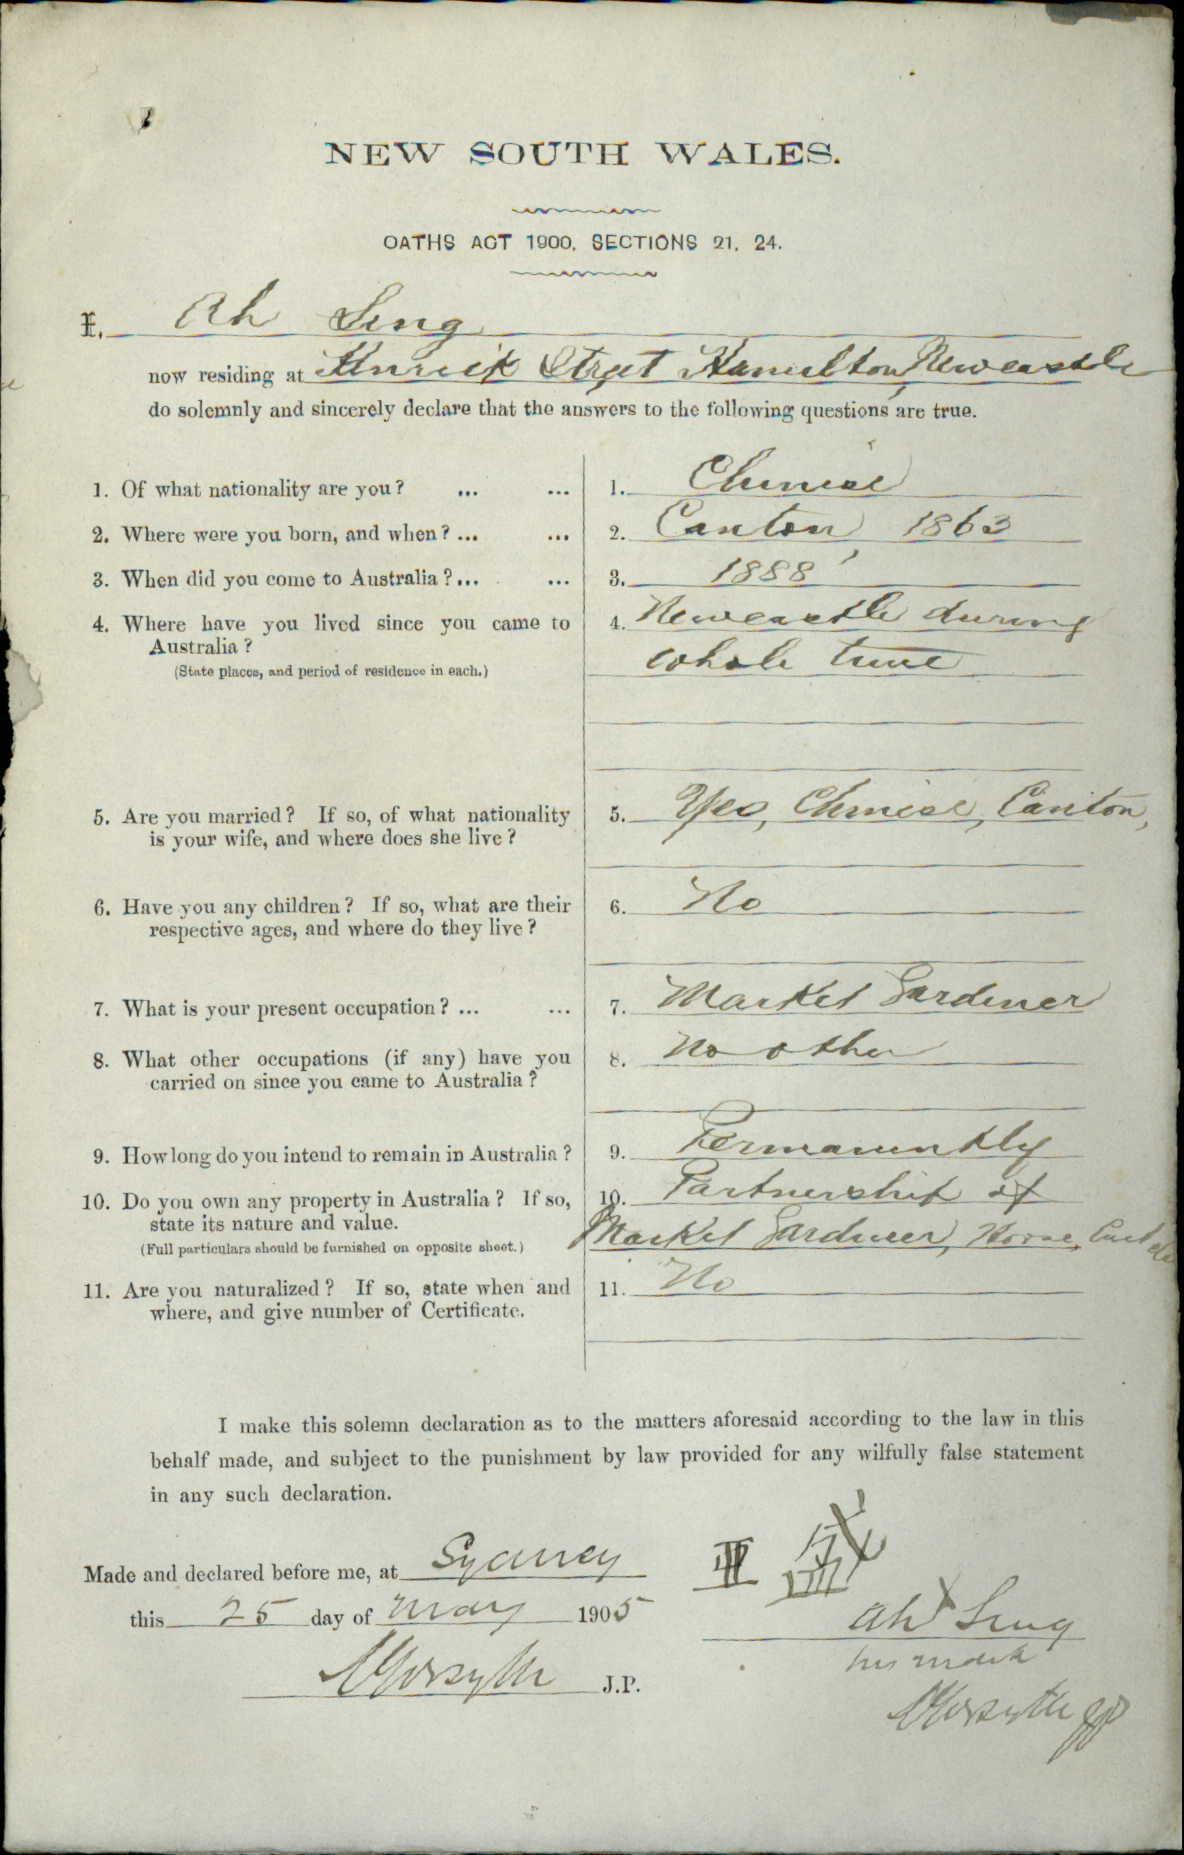 NEW SOUTH WALES.
OATHS ACT 1900, SECTIONS 21, 24.
I, Ah Ling
now residing at Street Hamilton, Newcastle
do solemnly and sincerely declare that the answers to the following questions are true.
1. Of what nationality are you? ... ... 1. Chinese
2. Where were you born, and when? ... ... 2. Canton 1863
3. When did you come to Australia? ... ... 3. 1888
4. Where have you lived since you came to 4. Newcastle during
Australia? whole time
(State places, and period of residence in each.)
5. Are you married? If so, of what nationality 5. Yes, Chinese, Canton,
is your wife, and where does she live?
6. Have you any children? If so, what are their 6. No
respective ages, and where do they live?
7. What is your present occupation? ... ... 7. Market Gardener
8. What other occupations (if any) have you 8. No other
carried on since you came to Australia?
9. How long do you intend to remain in Australia? 9. Permanently
10. Do you own any property in Australia? If so, 10. Partnership of
state its nature and value. Market Gardener, Horse, Cart
(Full particulars should be furnished on opposite sheet.)
11. Are you naturalized? If so, state when and 11. No
where, and give number of Certificate.
I make this solemn declaration as to the matters aforesaid according to the law in this
behalf made, and subject to the punishment by law provided for any wilfully false statement
in any such declaration.
Made and declared before me, at Sydney
this 25 day of May 1905
Ah X Ling
his mark
J.P.